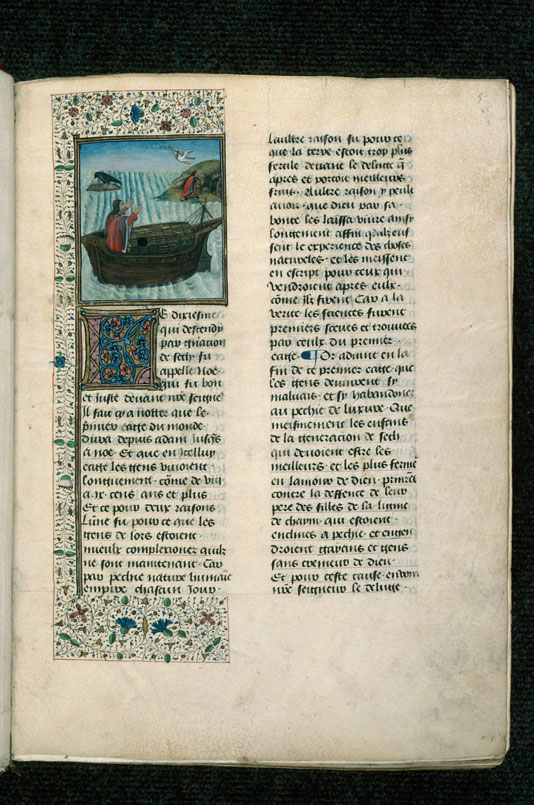 Le dixiesme
qui descendy
par gñacion
de seth fu
appelle Noe.
qui fu bon
et juste devant nr̃e seignr̃
Il fait cy a notter que le
p̃mier eaige du monde
dura depuis adam jusq̃s
a noe. Et que en jcelluy
eaige les gens vivoient
longuement. cõme de viij
a ix cens ans et plus
Et ce pour deux raisons
Lune fu pour ce que les
gens de lors estoient
mieulx complexionez quilz
ne sont maintenant. Car
par pechie nature humaĩe
empire chascun jour.
Laultre raison fu pour ce
que la terre estoit trop plus
fertile devant le deluge q̃
apres et portoit meilleurs
fruis. Aultre raison y peult
avoir. que dieu par sa
bonte les laissa vivre ainsy
longement affin quilz eus
sent le experience des choses
natureles. et les meissent
en escript pour ceulx qui
vendroient apres eulx.
cõme jlz firent Car a la
verite les sciences furent
premiers sceues et trouvees
par ceulx du premier
eaige. Or advint en la
fin de ce premier eaige que
les gens devinrent sy
malvais. et sy habandonez
au pechie de luxure. Que
meismement les enfans
de la generacion de seth
qui devoient estre les
meilleurs. et les plus ferme
en lamour de dieu. prinrẽt
contre la deffence de leur
pere des filles de la lignie
de chaym. qui estoient
enclines a pechie. et engen
droient gayans et gens
sans cremeur de dieu.
Et pour ceste cause envoya
nr̃e seigneur le deluge.